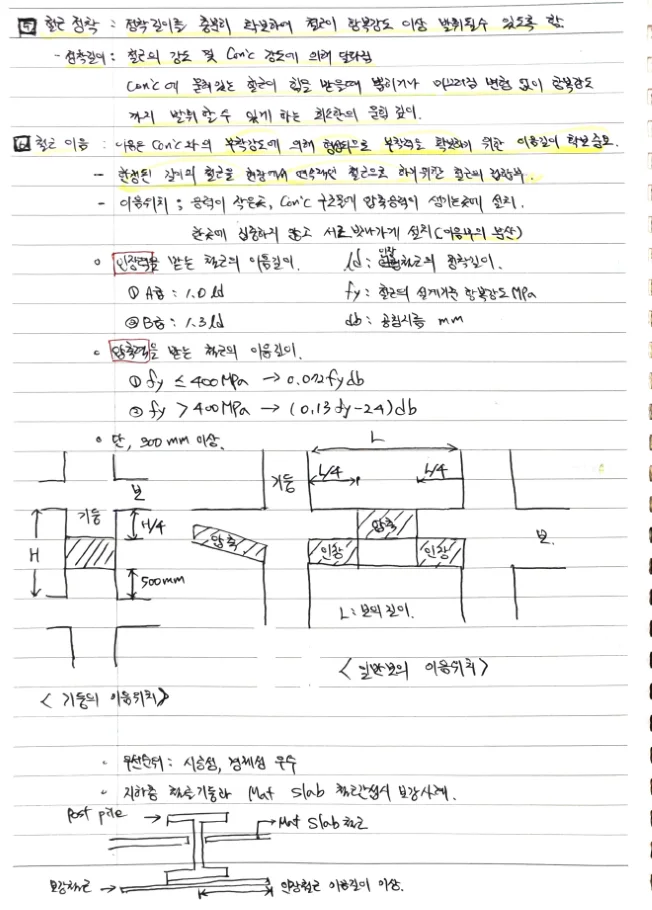 5 철근 정착 : 정착길이를 충분히 확보하여 철근이 항복강도 이상 발휘될수 있도록 함.
- 정착길이 : 철근의 강도 및 Con'c 강도에 의해 달라짐
Con'c에 묻혀있는 철근이 힘을 받을때 뽑히거나 미끄러짐 변형 없이 항복강도
까지 발휘할 수 있게 하는 최소한의 묻힘 깊이.
6 철근 이음 : 이음은 Con'c와의 부착강도에 의해 형성되므로 부착강도 확보하기 위한 이음길이 확보 중요.
- 한정된 길이의 철근을 현장에서 연속적인 철근으로 하기위한 철근의 접합부.
- 이음위치 ; 응력이 작은곳, Con'c 구조물에 압축응력이 생기는곳에 설치.
한곳에 집중하지 않고 서로 엇나가게 설치(이음부의 분산)
∘ 인장력을 받는 철근의 이음길이. ld : 인장철근의 정착길이.
① A급 : 1.0 ld fy : 철근의 설계기준 항복강도 MPa
② B급 : 1.3 ld db : 공칭지름 mm
∘ 압축력을 받는 철근의 이음길이.
① fy ≤ 400MPa → 0.072fydb
② fy > 400MPa → (0.13fy-24)db
∘ 단, 300mm 이상.
L
보 기둥 L/4 L/4
기둥 H/4 압축 압축 보.
H 인장 인장
500mm
L : 보의 길이.
< 일반보의 이음위치 >
< 기둥의 이음위치 >
∘ 우선순위 : 시공성, 경제성 우수
∘ 지하층 철골기둥과 Mat Slab 철근간섭시 보강사례.
Post pile → → Mat Slab 철근
보강철근 → 인장철근 이음길이 이상.